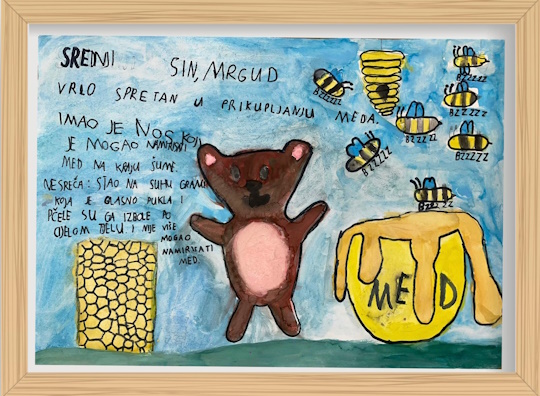 SREDNJI SIN, MRGUD
VRLO SPRETAN U PRIKUPLJANJU MEDA.
IMAO JE NOS KOJI
JE MOGAO NAMIRISATI
MED NA KRAJU ŠUME.
NESREĆA: STAO NA SUHU GRANU
KOJA JE GLASNO PUKLA I
PČELE SU GA IZBOLE PO
CIJELOM TIJELU I NIJE VIŠE
MOGAO
NAMIRISATI
MED.
BZZZZZ
BZZZZZ
BZZZZ
BZZZZ
BZZZZ
BZZZZ
BZZZZ
MED